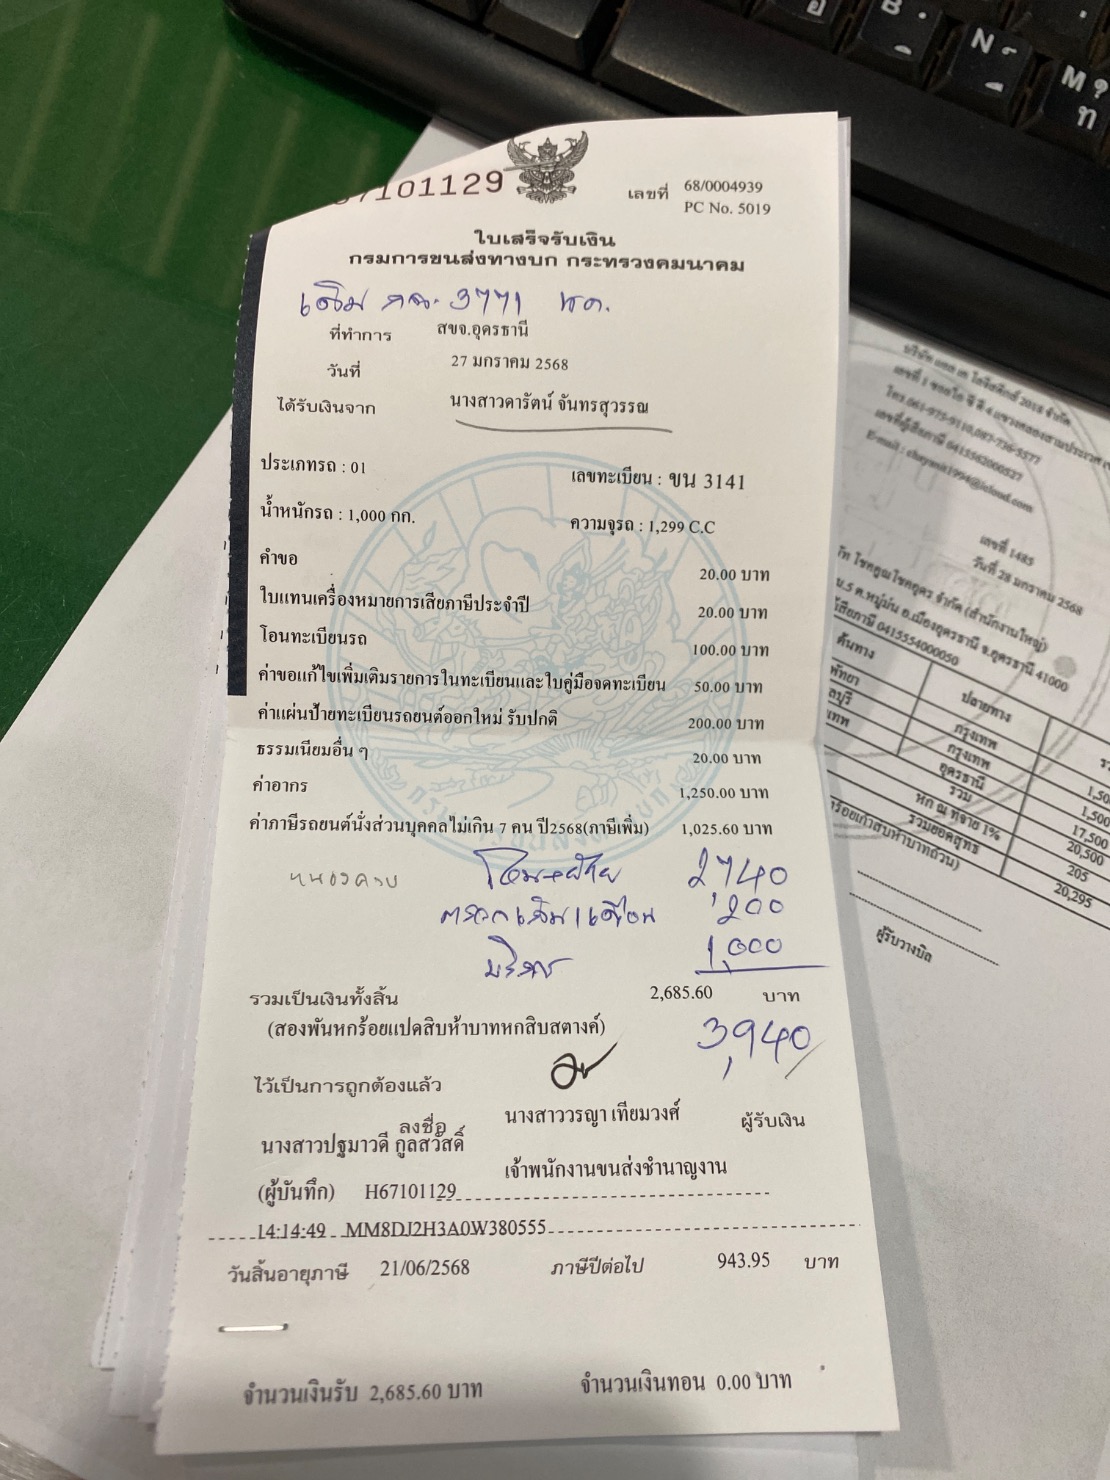 67101129
เลขที่ 68/0004939
PC No. 5019
ใบเสร็จรับเงิน
กรมการขนส่งทางบก กระทรวงคมนาคม
เดิม 3771
ที่ทำการ สขจ.อุดรธานี
วันที่ 27 มกราคม 2568
ได้รับเงินจาก นางสาวดารัตน์ จันทรสุวรรณ
ประเภทรถ : 01 เลขทะเบียน : ขน 3141
น้ำหนักรถ : 1,000 กก. ความจุรถ : 1,299 C.C
คำขอ 20.00 บาท
ใบแทนเครื่องหมายการเสียภาษีประจำปี 20.00 บาท
โอนทะเบียนรถ 100.00 บาท
ค่าขอแก้ไขเพิ่มเติมรายการในทะเบียนและใบคู่มือจดทะเบียน 50.00 บาท
ค่าแผ่นป้ายทะเบียนรถยนต์ออกใหม่ รับปกติ 200.00 บาท
ธรรมเนียมอื่น ๆ 20.00 บาท
ค่าอากร 1,250.00 บาท
ค่าภาษีรถยนต์นั่งส่วนบุคคลไม่เกิน 7 คน ปี2568(ภาษีเพิ่ม) 1,025.60 บาท
โอน+ย้าย 2,740
200
บริการ 1,000
รวมเป็นเงินทั้งสิ้น 2,685.60 บาท
(สองพันหกร้อยแปดสิบห้าบาทหกสิบสตางค์) 3,940
ไว้เป็นการถูกต้องแล้ว
ลงชื่อ นางสาววรญา เทียมวงศ์ ผู้รับเงิน
นางสาวปฐมาวดี กูลสวัสดิ์ เจ้าพนักงานขนส่งชำนาญงาน
(ผู้บันทึก) H67101129
14:14:49 MM8DJ2H3A0W380555
วันสิ้นอายุภาษี 21/06/2568 ภาษีปีต่อไป 943.95 บาท
จำนวนเงินรับ 2,685.60 บาท จำนวนเงินทอน 0.00 บาท
เลขที่ 1485
วันที่ 28 มกราคม 2568
ต้นทาง ปลายทาง
กรุงเทพ 1,500
กรุงเทพ 1,500
อุดรธานี 17,500
รวม 20,500
หัก ณ ที่จ่าย 1% 205
รวมยอดสุทธิ 20,295
ผู้รับวางบิล